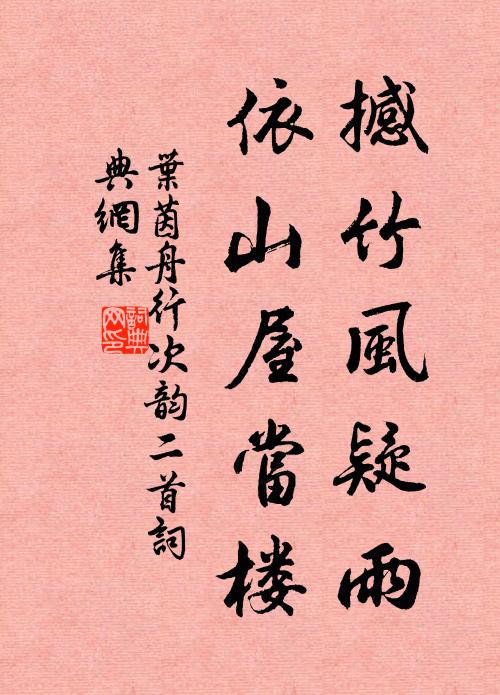 撼竹風疑雨
依山屋當楼
葉茵舟行次韵二首詞
典網集
詞典网印